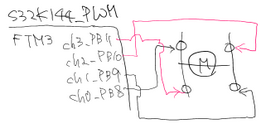 S32K144_PWM
FTM3
ch3_PB11
ch2_PB10
ch1_PB9
ch0_PB8
M